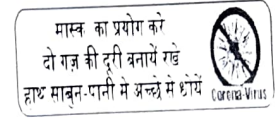 मास्क का प्रयोग करे
दो गज़ की दूरी बनायें रखे
हाथ साबुन-पानी मे अच्छे मे धोयें
Corona-Virus